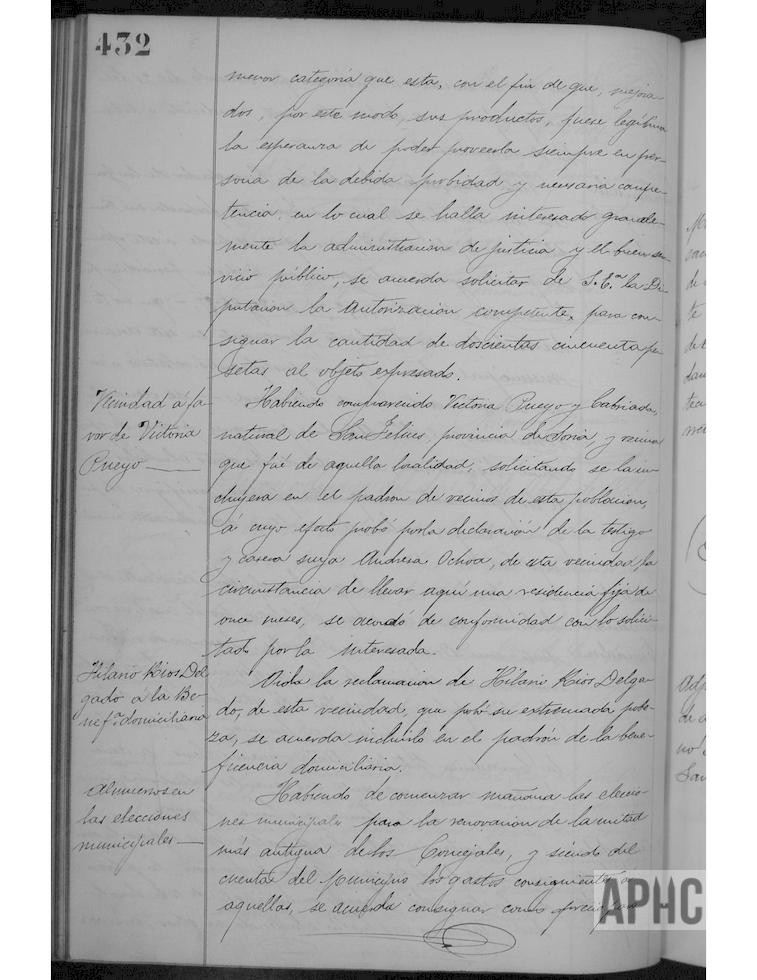 432
menor categoría que esta, con el fin de que, mejora-
dos, por este modo, sus productos, fuese legítima
la esperanza de poder proveerla siempre en per-
sona de la debida probidad y necesaria compe-
tencia, en lo cual se halla interesado grande-
mente la administracion de justicia y el buen ser-
vicio público, se acuerda solicitar de S. E.ª la Di-
putacion la autorizacion competente, para con-
signar la cantidad de doscientas cincuenta pe-
setas al objeto expresado.
Vecindad á fa
vor de Victoria
Pueyo
Habiendo comparecido Victoria Pueyo y Cabriada,
natural de San Felices, provincia de Soria, y vecina
que fué de aquella localidad, solicitando se la in-
cluyera en el padron de vecinos de esta poblacion,
á cuyo efecto probó por la declaración de la testigo
y casera suya Andresa Ochoa, de esta vecindad, la
circunstancia de llevar aquí una residencia fija de
once meses, se acordó de conformidad con lo solici-
tado por la interesada.
Hilario Rios Del
gado á la Be-
nef.ª domiciliaria
Vista la reclamacion de Hilario Rios Delga-
do, de esta vecindad, que probó su extremada pobre-
za, se acuerda incluirlo en el padrón de la bene-
ficencia domiciliaria.
Almuerzos en
las elecciones
municipales
Habiendo de comenzar mañana las eleccio-
nes municipales para la renovacion de la mitad
más antigua de los Concejales, y siendo del
cuenta del Municipio los gastos consiguientes a
aquellas, se acuerda consignar como precio para
APHC